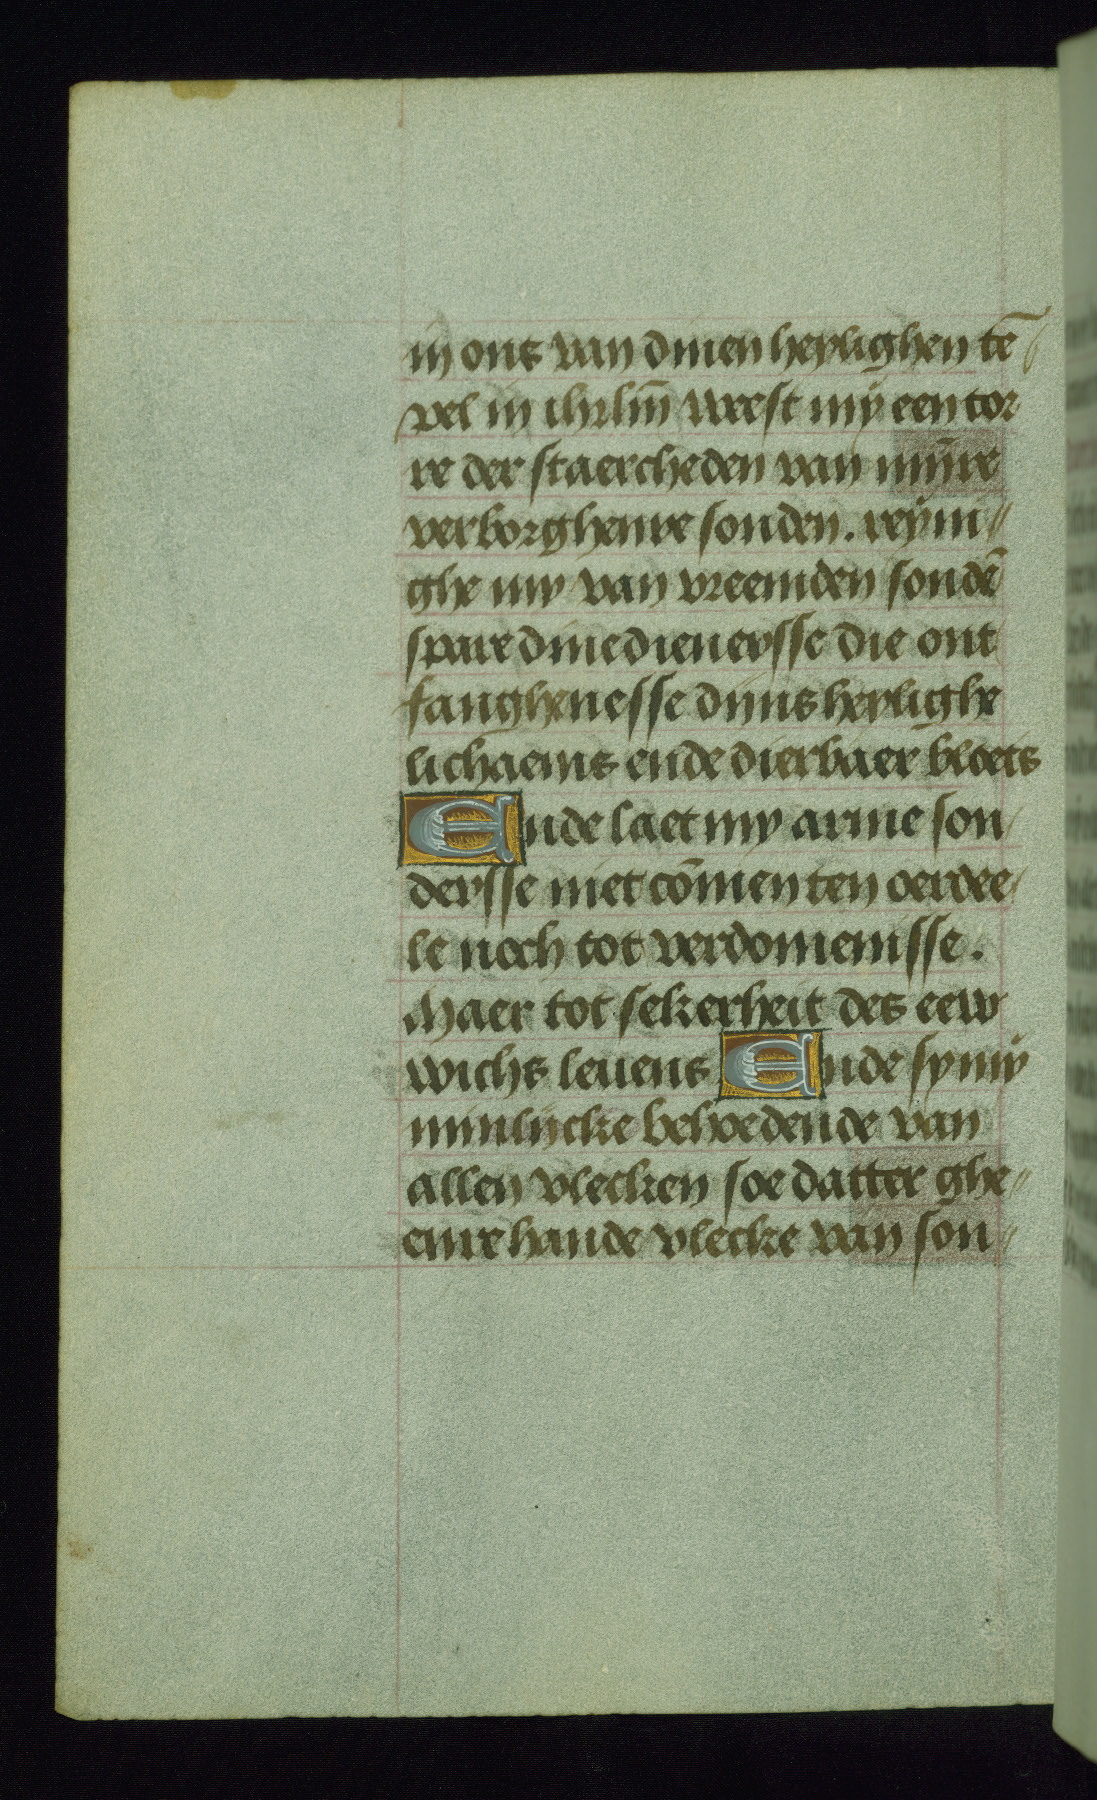 in ons van dinen heylighen tē
pel in ihrlm̄ weest mÿ een tor
re der staercheden van mīnre
verborghenre sonden. reÿni
ghe my van vreemden sondē
spare dine dienersse die ont
fanghenesse dijns heylighe
lichaems ende dierbaer bloets
Ende laet my arme son
dersse niet cōmen ten oerdee
le noch tot verdomenisse.
Maer tot sekerheit des eew
wichs leuens Ende sy mÿ
minlijcke behoedende van
allen vlecken soe datter ghe
enrehande vlecke van son